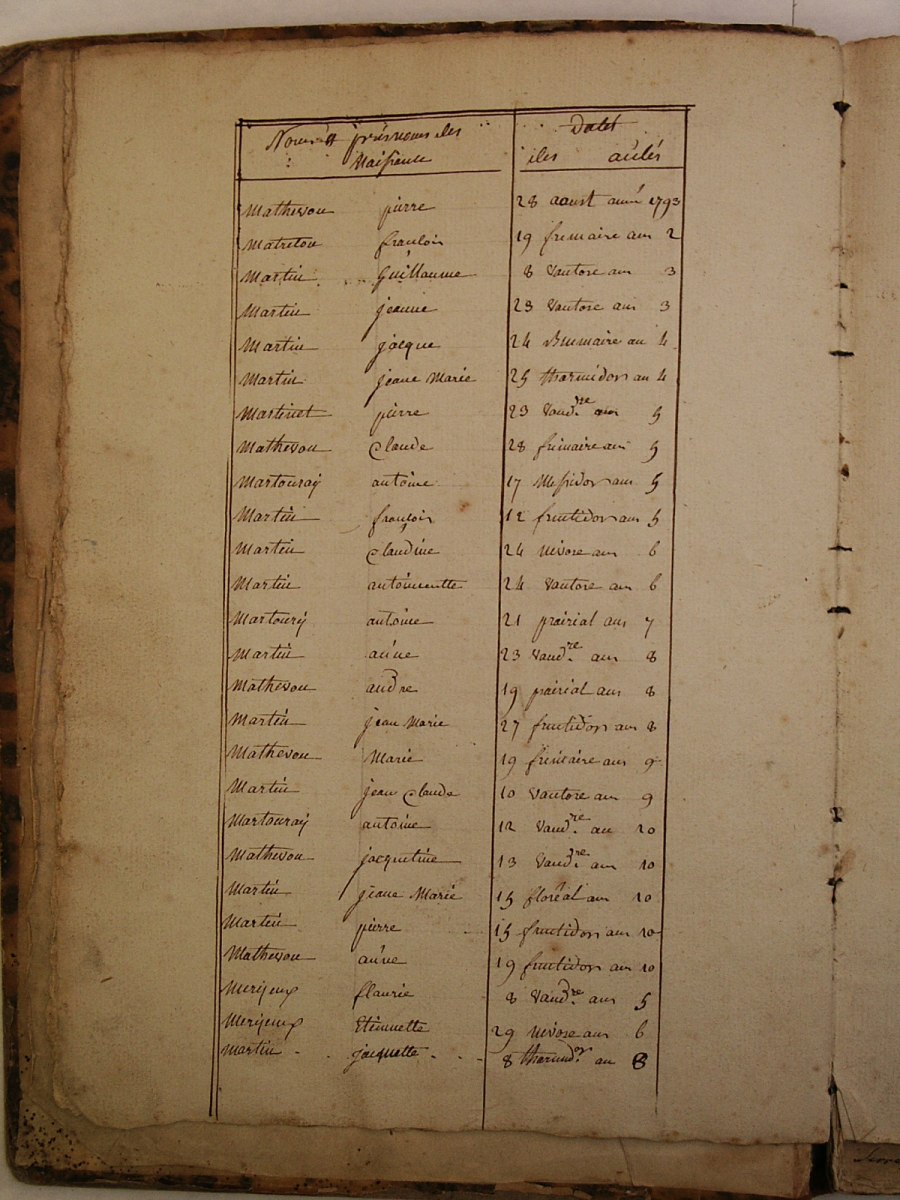 Noms & prénoms des Dates
Naissance des actes
Mathevon pierre 28 aoust anné 1793
Matreton françois 19 frimaire ans 2
Martin Guillaume 8 vantose ans 3
Martin jeanne 23 vantose ans 3
Martin jacque 24 Brumaire an 4
Martin jeane Marie 25 tharmidors an 4
Martinet pierre 23 vand.re ans 5
Mathevon Claude 28 frimaire ans 5
Martouray antoine 17 Messidors ans 5
Martin françois 12 fructidors ans 5
Martin Claudine 24 nivose ans 6
Martin antoinnette 24 vantose ans 6
Martoury antoine 21 prairial ans 7
Martin anne 23 vand.re ans 8
Mathevon andre 19 prairial ans 8
Martin jean Marie 27 fructidors ans 8
Mathevon Marie 19 frimaire ans 9
Martin jean Claude 10 vantose ans 9
Martouray antoine 12 vand.re an 10
Mathevon jacquetine 13 vand.re ans 10
Martin jeane Marie 15 floréal ans 10
Martin pierre 15 fructidors ans 10
Mathevon anne 19 fructidors ans 10
Merijeux flaurie 8 vand.re ans 5
Merijeux Etiennette 29 nivose ans 6
Martin jacquette 8 tharmid.or an 8